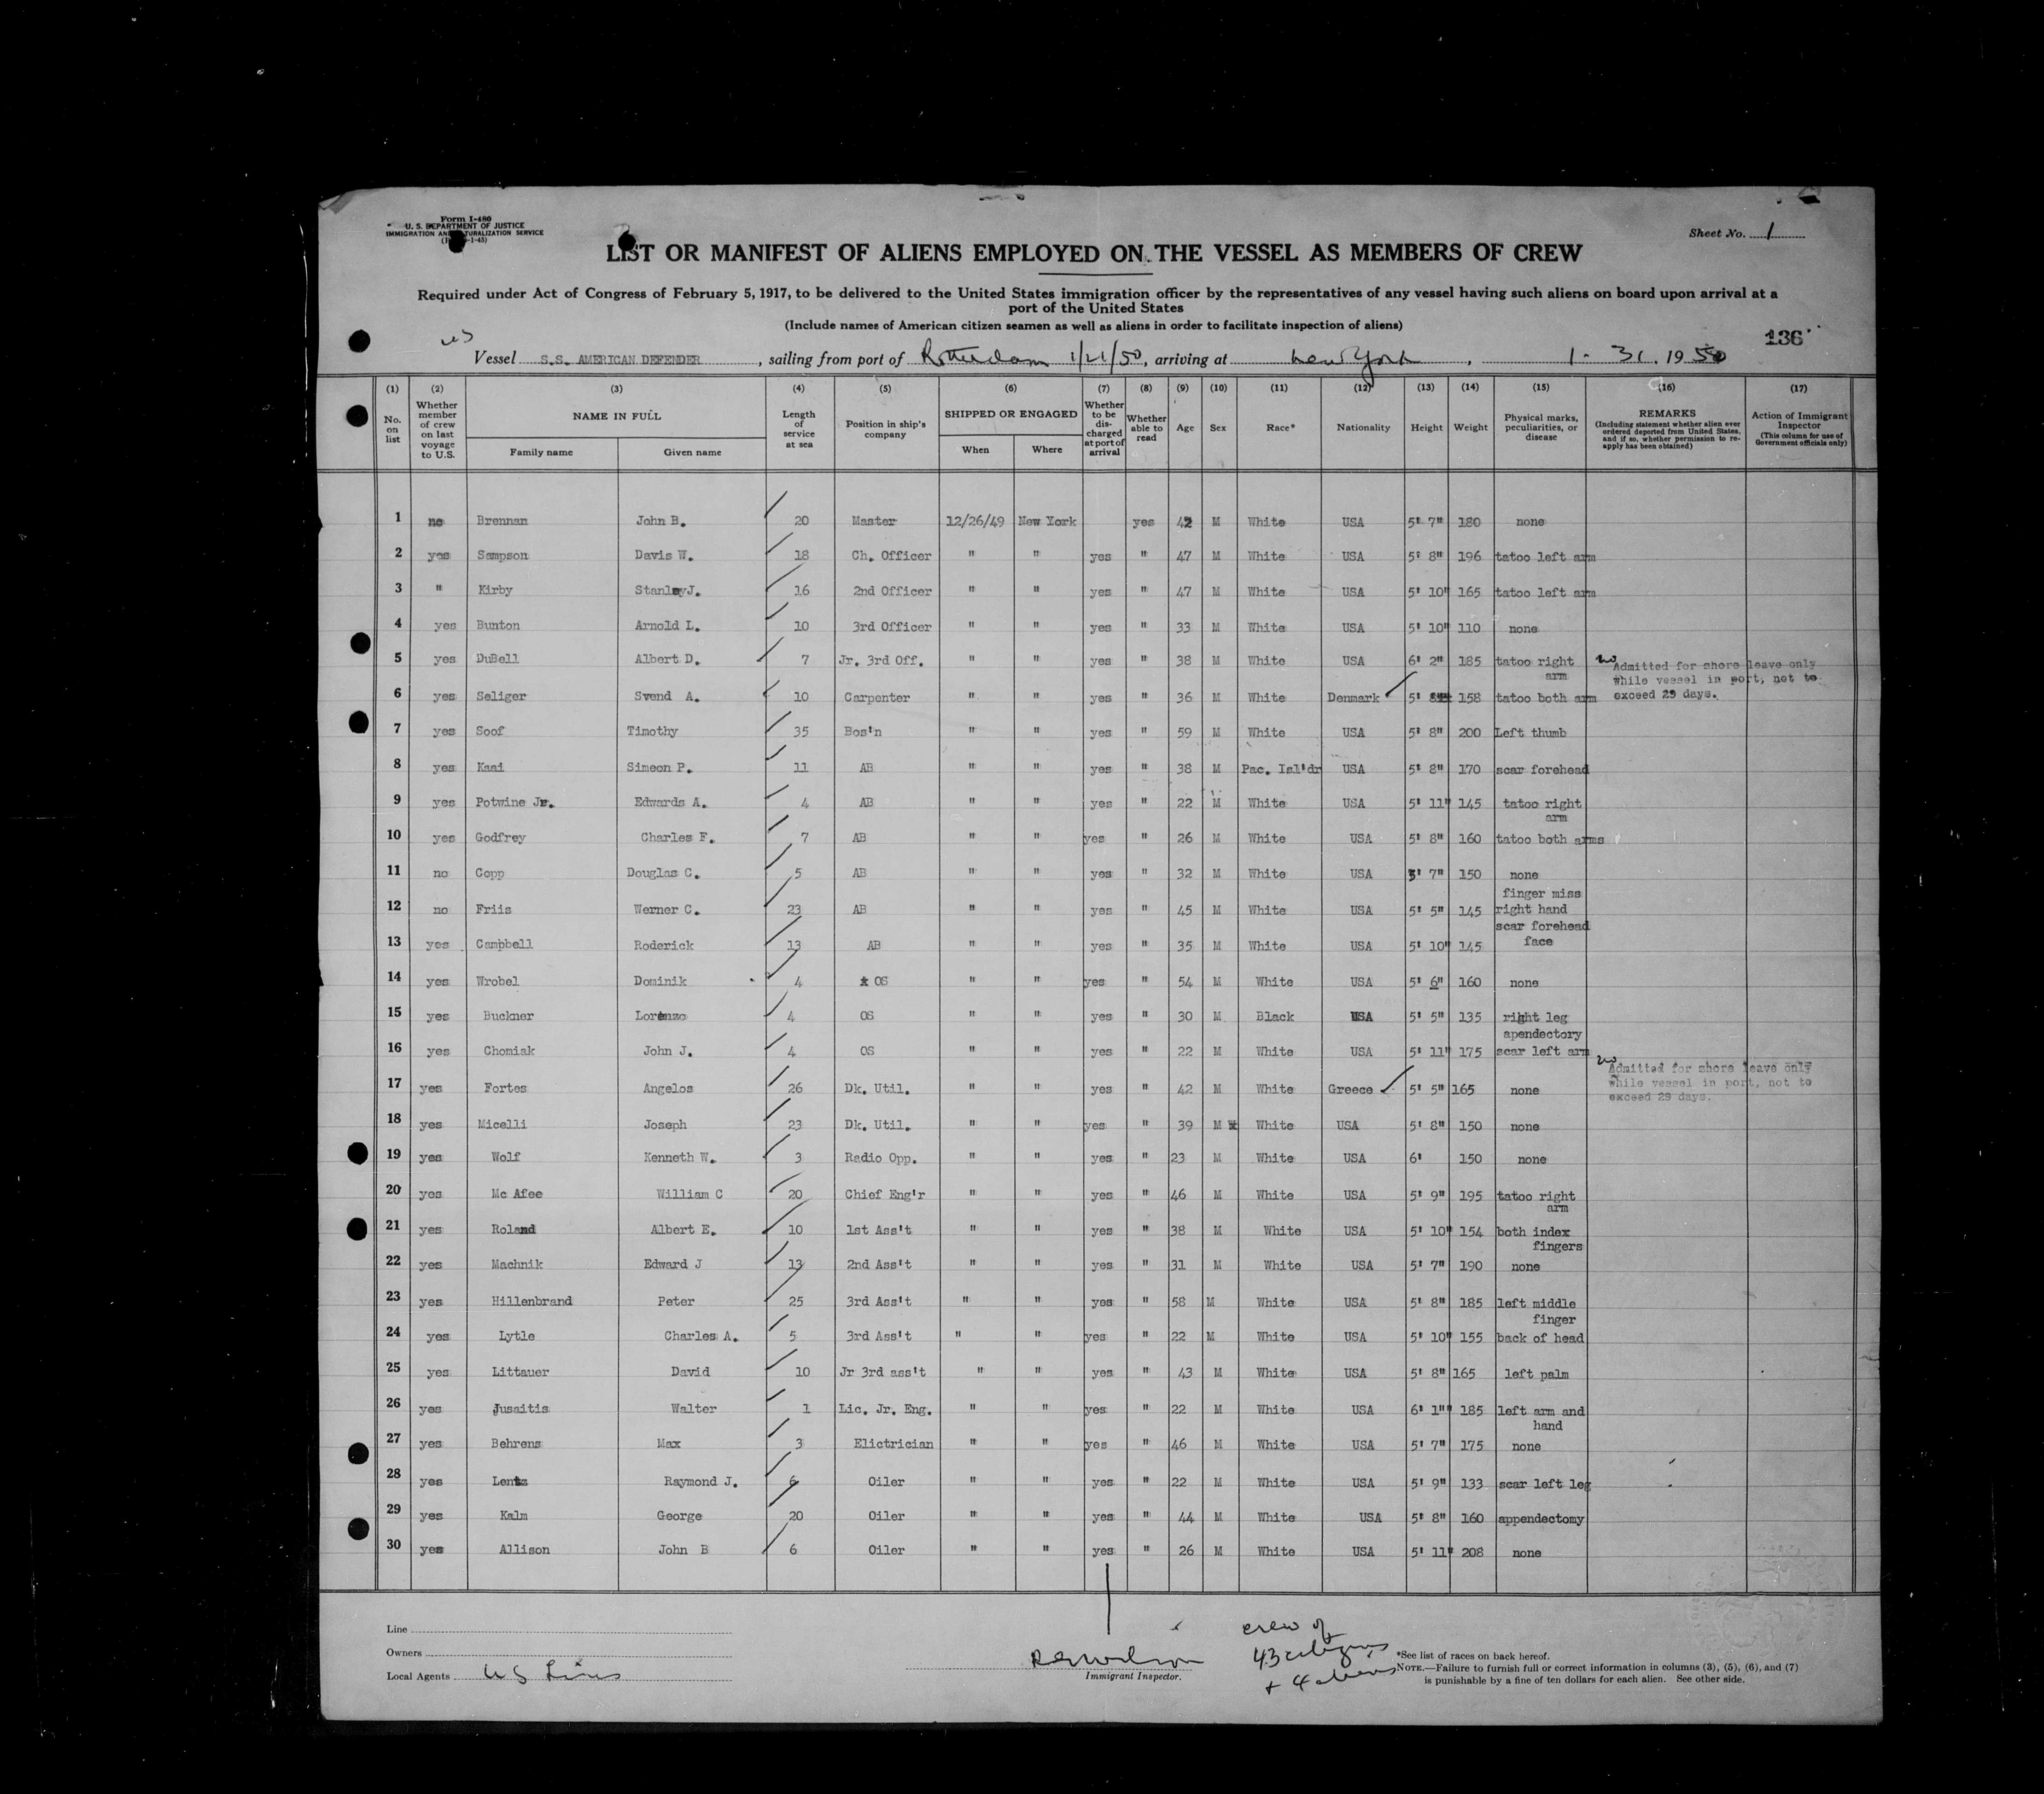 Form I-480
U. S. DEPARTMENT OF JUSTICE
IMMIGRATION AND NATURALIZATION SERVICE
Sheet No. 1
LIST OR MANIFEST OF ALIENS EMPLOYED ON THE VESSEL AS MEMBERS OF CREW
Required under Act of Congress of February 5, 1917, to be delivered to the United States immigration officer by the representatives of any vessel having such aliens on board upon arrival at a
port of the United States
(Include names of American citizen seamen as well as aliens in order to facilitate inspection of aliens)
136
Vessel S.S. AMERICAN DEFENDER, sailing from port of Rotterdam 1/21/50, arriving at New York, 1-31.1950
(1) No. on list (2) Whether member of crew on last voyage to U.S. (3) NAME IN FULL Family name Given name (4) Length of service at sea (5) Position in ship's company (6) SHIPPED OR ENGAGED When Where (7) Whether to be discharged at port of arrival (8) Whether able to read (9) Age (10) Sex (11) Race* (12) Nationality (13) Height (14) Weight (15) Physical marks, peculiarities, or disease (16) REMARKS (Including statement whether alien ever ordered deported from United States, and if so, whether permission to re-apply has been obtained) (17) Action of Immigrant Inspector (This column for use of Government officials only)
1 no Brennan John B. 20 Master 12/26/49 New York yes 42 M White USA 5' 7" 180 none
2 yes Sampson Davis W. 18 Ch. Officer " " yes " 47 M White USA 5' 8" 196 tatoo left arm
3 " Kirby Stanley J. 16 2nd Officer " " yes " 47 M White USA 5' 10" 165 tatoo left arm
4 yes Bunton Arnold L. 10 3rd Officer " " yes " 33 M White USA 5' 10" 110 none
5 yes DuBell Albert D. 7 Jr. 3rd Off. " " yes " 38 M White USA 6' 2" 185 tatoo right arm
6 yes Seliger Svend A. 10 Carpenter " " yes " 36 M White Denmark 5' 158 tatoo both arm Admitted for shore leave only while vessel in port, not to exceed 29 days.
7 yes Soof Timothy 35 Bos'n " " yes " 59 M White USA 5' 8" 200 Left thumb
8 yes Kaai Simeon P. 11 AB " " yes " 38 M Pac. Isl'dr USA 5' 8" 170 scar forehead
9 yes Potwine Jr. Edwards A. 4 AB " " yes " 22 M White USA 5' 11" 145 tatoo right arm
10 yes Godfrey Charles F. 7 AB " " yes " 26 M White USA 5' 8" 160 tatoo both arms
11 no Copp Douglas C. 5 AB " " yes " 32 M White USA 5' 7" 150 none
12 no Friis Werner C. 23 AB " " yes " 45 M White USA 5' 5" 145 finger miss right hand
13 yes Campbell Roderick 13 AB " " yes " 35 M White USA 5' 10" 145 scar forehead face
14 yes Wrobel Dominik 4 OS " " yes " 54 M White USA 5' 6" 160 none
15 yes Buckner Lorenzo 4 OS " " yes " 30 M Black USA 5' 5" 135 right leg
16 yes Chomiak John J. 4 OS " " yes " 22 M White USA 5' 11" 175 apendectory scar left arm
17 yes Fortes Angelos 26 Dk. Util. " " yes " 42 M White Greece 5' 5" 165 none Admitted for shore leave only while vessel in port, not to exceed 29 days.
18 yes Micelli Joseph 23 Dk. Util. " " yes " 39 M White USA 5' 8" 150 none
19 yes Wolf Kenneth W. 3 Radio Opp. " " yes " 23 M White USA 6' 150 none
20 yes Mc Afee William C 20 Chief Eng'r " " yes " 46 M White USA 5' 9" 195 tatoo right arm
21 yes Roland Albert E. 10 1st Ass't " " yes " 38 M White USA 5' 10" 154 both index fingers
22 yes Machnik Edward J 13 2nd Ass't " " yes " 31 M White USA 5' 7" 190 none
23 yes Hillenbrand Peter 25 3rd Ass't " " yes " 58 M White USA 5' 8" 185 left middle finger
24 yes Lytle Charles A. 5 3rd Ass't " " yes " 22 M White USA 5' 10" 155 back of head
25 yes Littauer David 10 Jr 3rd ass't " " yes " 43 M White USA 5' 8" 165 left palm
26 yes Jusaitis Walter 1 Lic. Jr. Eng. " " yes " 22 M White USA 6' 1" 185 left arm and hand
27 yes Behrens Max 3 Elictrician " " yes " 46 M White USA 5' 7" 175 none
28 yes Lentz Raymond J. 6 Oiler " " yes " 22 M White USA 5' 9" 133 scar left leg
29 yes Kalm George 20 Oiler " " yes " 44 M White USA 5' 8" 160 appendectomy
30 yes Allison John B 6 Oiler " " yes " 26 M White USA 5' 11" 208 none
Line
Owners
Local Agents U S Lines
Immigrant Inspector.
crew of
43 citizens
+ 4 aliens
*See list of races on back hereof.
NOTE.—Failure to furnish full or correct information in columns (3), (5), (6), and (7)
is punishable by a fine of ten dollars for each alien. See other side.